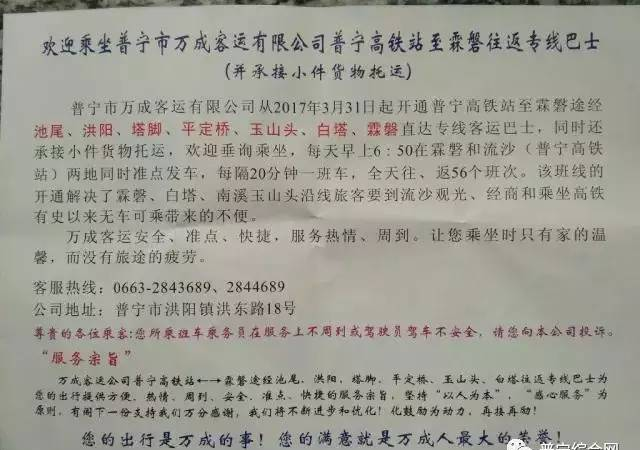 欢迎乘坐普宁市万成客运有限公司普宁高铁站至霖磐往返专线巴士
(并承接小件货物托运)
普宁市万成客运有限公司从2017年3月31日起开通普宁高铁站至霖磐途经
池尾、洪阳、塔脚、平定桥、玉山头、白塔、霖磐直达专线客运巴士，同时还
承接小件货物托运，欢迎垂询乘坐，每天早上6：50在霖磐和流沙（普宁高铁
站）两地同时准点发车，每隔20分钟一班车，全天往、返56个班次。该班线的
开通解决了霖磐、白塔、南溪玉山头沿线旅客要到流沙观光、经商和乘坐高铁
有史以来无车可乘带来的不便。
万成客运安全、准点、快捷，服务热情、周到。让您乘坐时只有家的温
馨，而没有旅途的疲劳。
客服热线：0663-2843689、2844689
公司地址：普宁市洪阳镇洪东路18号
尊贵的各位乘客:您所乘班车乘务员在服务上不周到或驾驶员驾车不安全，请您向本公司投诉。
“服务宗旨”
万成客运公司普宁高铁站←→霖磐途经池尾、洪阳、塔脚、平定桥、玉山头、白塔往返专线巴士为
您的出行提供方便、热情、周到、安全、准点、快捷的服务宗旨，坚持“以人为本”，“感心服务”为
原则，有阁下一份支持我们万分感谢，我们将不断进步和优化！化鼓励为动力，再接再励！
您的出行是万成的事！您的满意就是万成人最大的荣誉！
普宁综合网